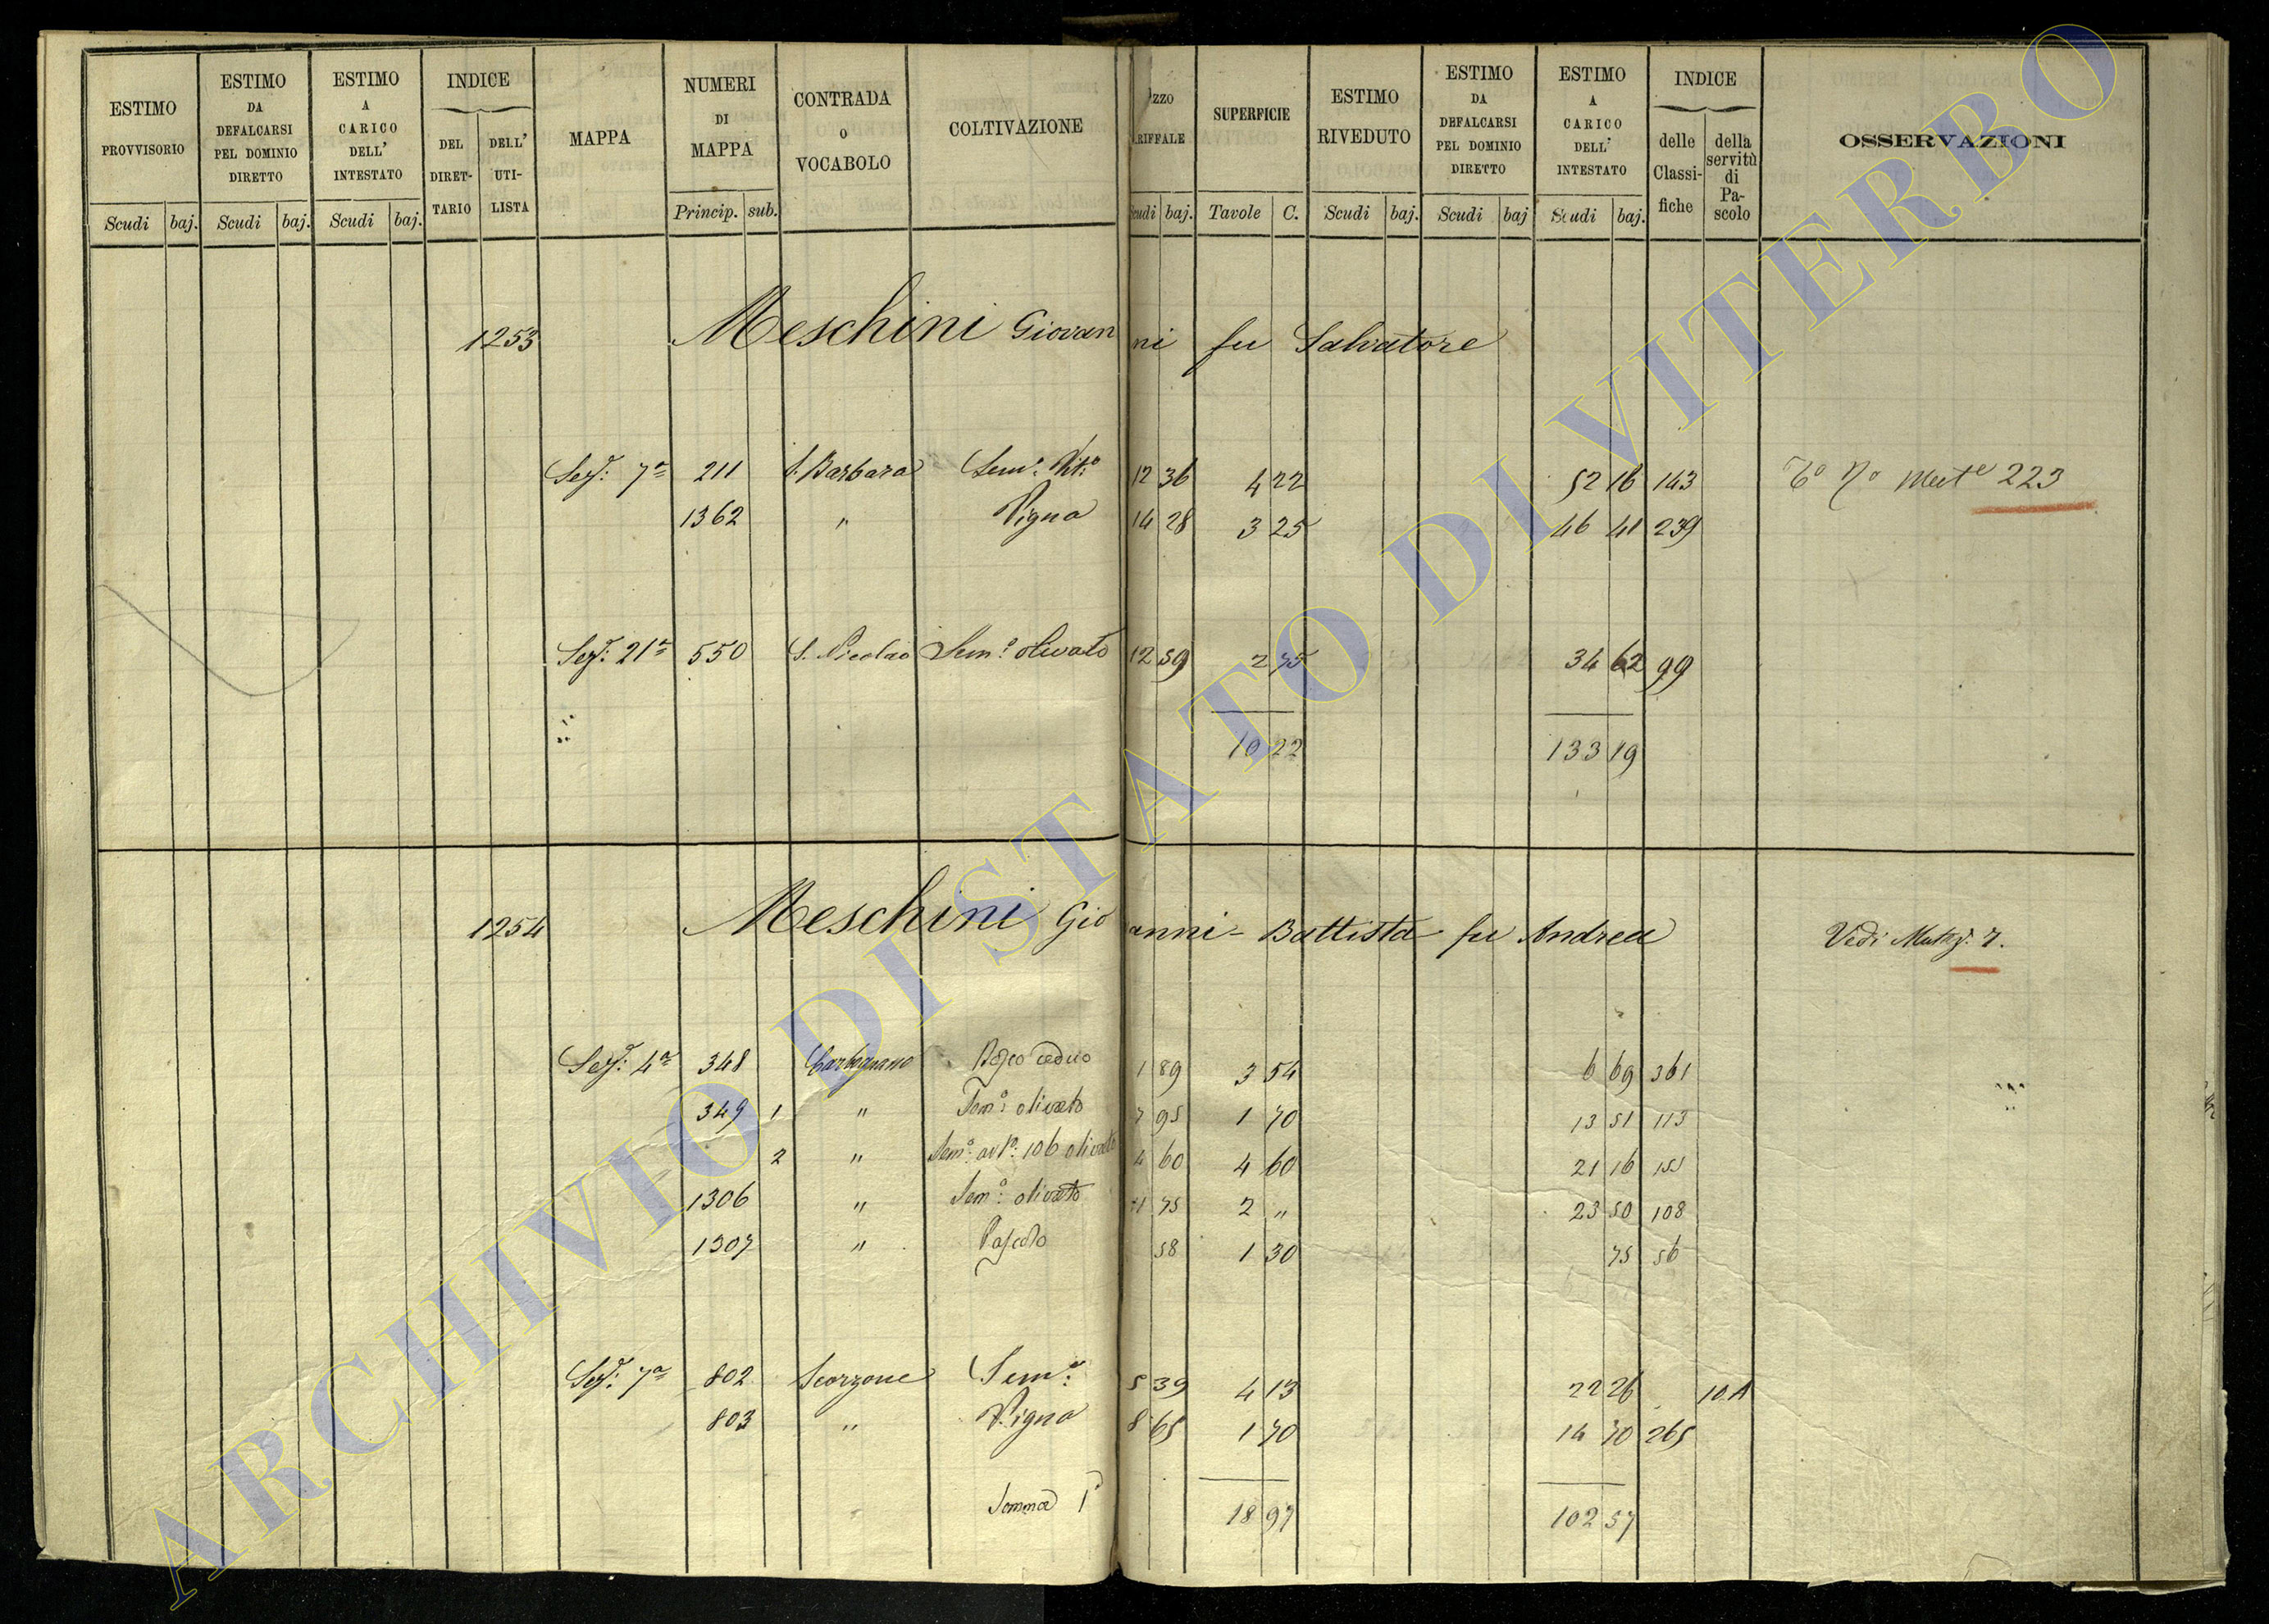 ESTIMO PROVVISORIO | ESTIMO DA DEFALCARSI PEL DOMINIO DIRETTO | ESTIMO A CARICO DELL' INTESTATO | INDICE DEL DIRET-TARIO | DELL' UTI-LISTA | MAPPA | NUMERI DI MAPPA | CONTRADA O VOCABOLO | COLTIVAZIONE | zzo RIFFALE | SUPERFICIE | ESTIMO RIVEDUTO | ESTIMO DA DEFALCARSI PEL DOMINIO DIRETTO | ESTIMO A CARICO DELL' INTESTATO | INDICE delle Classi-fiche | della servitù di Pa-scolo | OSSERVAZIONI
Scudi baj. Scudi baj. Scudi baj. Princip. sub. udi baj. Tavole C. Scudi baj. Scudi baj Scudi baj.
1253 Meschini Giovanni fu Salvatore
Sezᵉ: 7ª 211 S. Barbara Semº: Vitº 12 36 4 22 52 16 143 223
1362 " Vigna 14 28 3 25 46 41 239
Sezᵉ: 21ª 550 S. Nicolao Semº: olivato 12 59 2 75 34 62 99
10 22 133 19
1254 Meschini Gioanni-Battista fu Andrea Vedi Mutaz. 7.
Sezᵉ: 4ª 348 Carbognano Bosco ceduo 1 89 3 54 6 69 361
349 1 " Semº: olivato 7 95 1 70 13 51 113
2 " Semº: 106 olivato 4 60 4 60 21 16 151
1306 " Semº: olivato 11 75 2 " 23 50 108
1307 " Pascolo 58 1 30 75 56
Sezᵉ: 7ª 802 Scorzone Semº: 5 39 4 13 22 26 10.A
803 " Vigna 8 65 1 70 14 70 265
Somma 18 97 102 57
ARCHIVIO DI STATO DI VITERBO